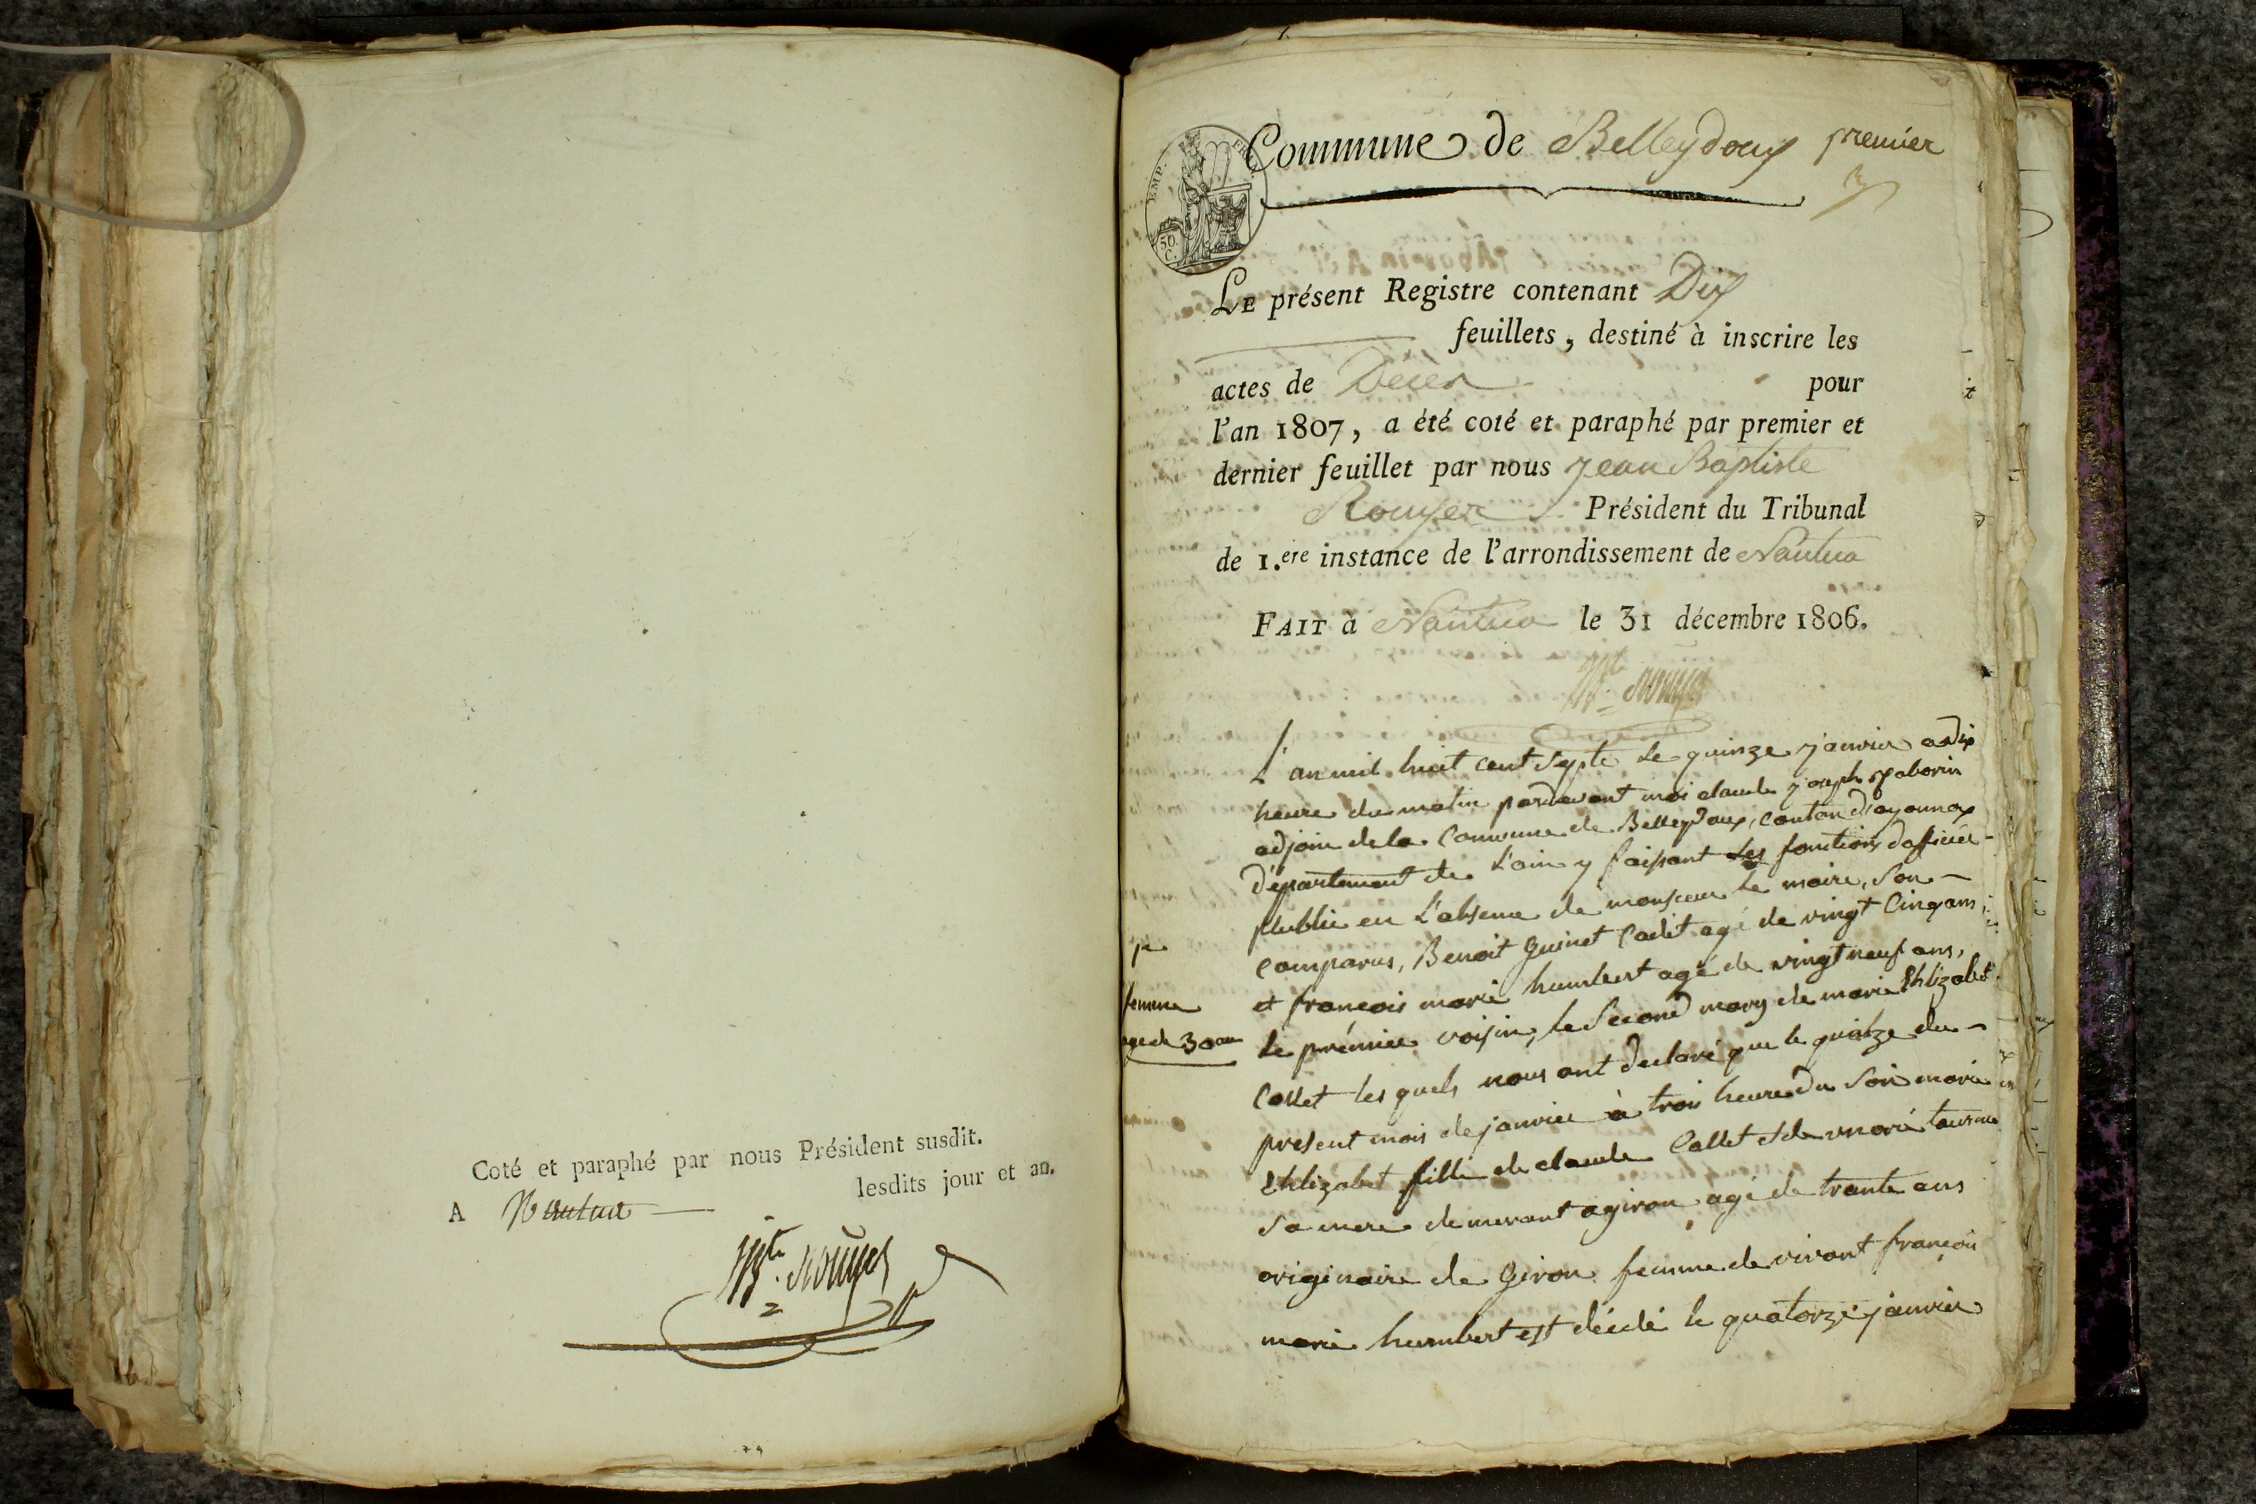 Coté et paraphé par nous Président susdit.
A Nantua lesdits jour et an.
JB.te Rouyer
EMP. FR.
50
C.
Commune de Belleydoux premier
LE présent Registre contenant Dix
feuillets, destiné à inscrire les
actes de Décès pour
l'an 1807, a été coté et paraphé par premier et
dernier feuillet par nous Jean Baptiste
Rouyer Président du Tribunal
de 1.ere instance de l'arrondissement de Nantua
FAIT à Nantua le 31 décembre 1806.
JB.te Rouyer
L'an mil huit cent septe le quinze janvier a dix
heure du matin pardevant moi claude joseph
adjoin de la Commune de Belleydoux, canton d'oyonnax
département de L'ain y faisant Les fonctions dofficier
publie en L'absence de monsieur le maire, Son
comparus, Benoit Guinet Cadit agé de vingt Cinq ans
et francois marie humbert agé de vingt neuf ans,
femme
agé de 30 an
le prémier voisin, le Second mary de marie Ehlizabet
Collet les quels nous ont declaré que le quinze du
present mois de janvier à trois heure du Soir marie
Ehlizabet fille de claude Collet et de marie
Sa mere demeurant a giron agé de trante ans
originaire de Giron femme de vivant francois
marie humbert est décédé le quatorze janvier